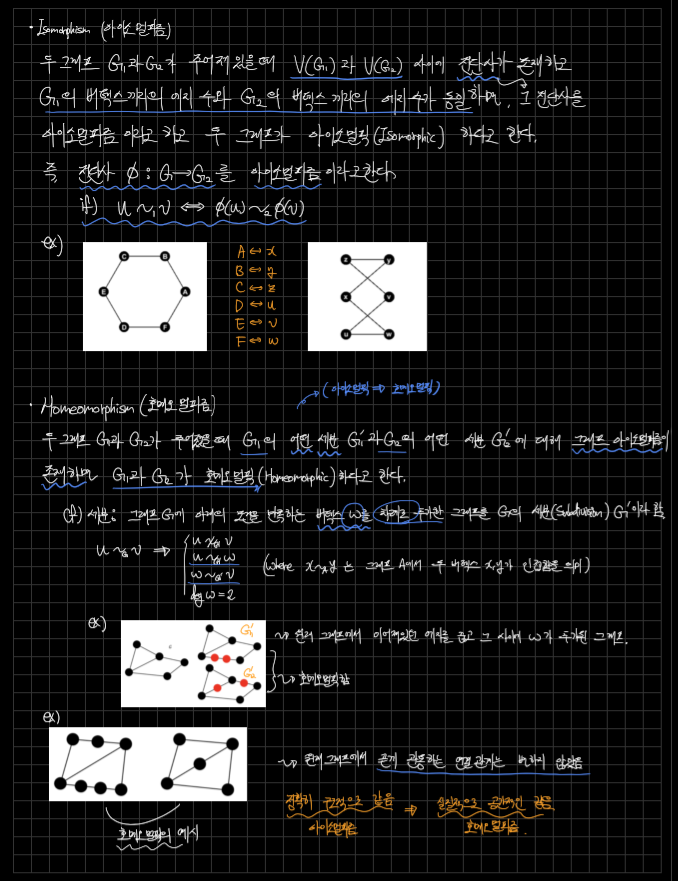 · Isomorphism (아이소멀피즘)
두 그래프 G₁과 G₂가 주어져 있을 때 V(G₁)과 V(G₂) 사이에 전단사가 존재하고
G₁의 버텍스끼리의 에지 수와 G₂의 버텍스 끼리의 에지 수가 동일하며, 그 전단사를
아이소멀피즘 이라고 하고 두 그래프가 아이소멀픽(Isomorphic) 하다고 한다.
즉, 전단사 ϕ : G₁→G₂ 를 아이소멀피즘 이라고한다.
if) u ~₁ v ⟺ ϕ(u) ~₂ ϕ(v)
ex)
C B
E A
D F
A ↔ x
B ↔ y
C ↔ z
D ↔ u
E ↔ v
F ↔ w
z y
x v
u w
(아이소멀픽 ⇒ 호메오멀픽)
· Homeomorphism (호메오멀피즘)
두 그래프 G₁과 G₂가 주어졌을때 G₁의 어떤 세분 G₁'과 G₂의 어떤 세분 G₂'에 대해 그래프 아이소멀피즘이
존재하면 G₁과 G₂가 호메오멀픽(Homeomorphic)하다고 한다.
cf) 세분 : 그래프 G에 아래의 조건을 만족하는 버텍스 w를 차례로 추가한 그래프를 G의 세분(Subdivision) G'이라 함.
u ~G v ⇒ { u ≁G' v
u ~G' w
w ~G' v
deg w = 2
(where x ~A y 는 그래프 A에서 두 버텍스 x, y가 인접함을 의미)
ex)
G₁'
G₂'
~> 원래 그래프에서 이어져있던 에지를 끊고 그 사이에 w가 추가된 그래프.
~> 호메오멀픽함
ex)
~> 원래 그래프에서 관통하는 연결관계는 변하지 않았음
정확히 구조적으로 같음 ⇒ 실질적으로 공간적인 같음
아이소멀피즘 호메오멀피즘.
호메오멀픽의 예시